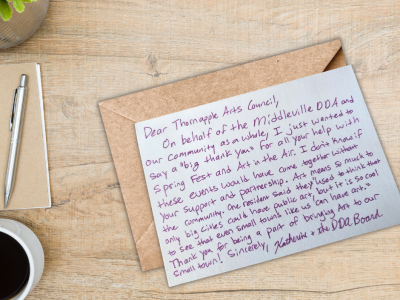 Dear Thornapple Arts Council,
On behalf of the Middleville DDA and
our community as a whole, I just wanted to
say a "big thank you" for all your help with
Spring Fest and Art in the Air. I don't know if
these events would have come together without
your support and partnership. Art means so much to
the community. One resident said they "used to think that
only big cities could have public art, but it is so cool
to see that even small towns like us can have art."
Thank you for being a part of bringing Art to our
small town! Sincerely, Katherine + the DDA Board